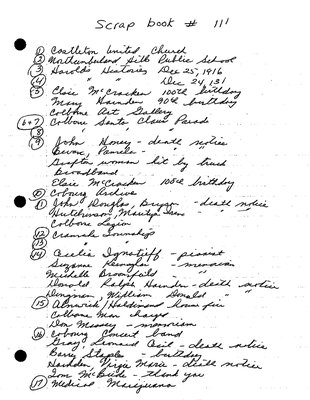 Scrap book # 111
① Castleton United Church
② Northumberland 4th Public School
③ Harold's Histories Dec 25, 1916
④ " " Dec 24, 131
⑤ Elsie McCracken 100th birthday
Mary Harnden 90th birthday
Colborne Art Gallery
6+7 Colborne Santa Claus Parade
⑧ " " "
⑨ John Honey - death notice
Burns, Pamela -
Grafton woman hit by truck
Broadband
Elsie McCracken 100th birthday
⑩ Cobourg Archive
⑪ John Douglas, Bryson - death notice
Hutchinson, Marilyn - " "
Colborne Legion
⑫ Cramahe Township
⑬ " "
⑭ Cecilia Ignatieff - pianist
Suzanne - memoriam
Michelle Broomfield - "
Donald Ralph Harnden - death notice
Dingman, William Donald " "
⑮ Alnwick/Haldimand home fire
Colborne Man charges
Don Massey - memoriam
⑯ Cobourg Concert band
Gray, Leonard Cecil - death notice
Barry Staples - birthday
Harnden, Virgie Marie - death notice
Tom McBride - thank you
⑰ Medical Marijuana